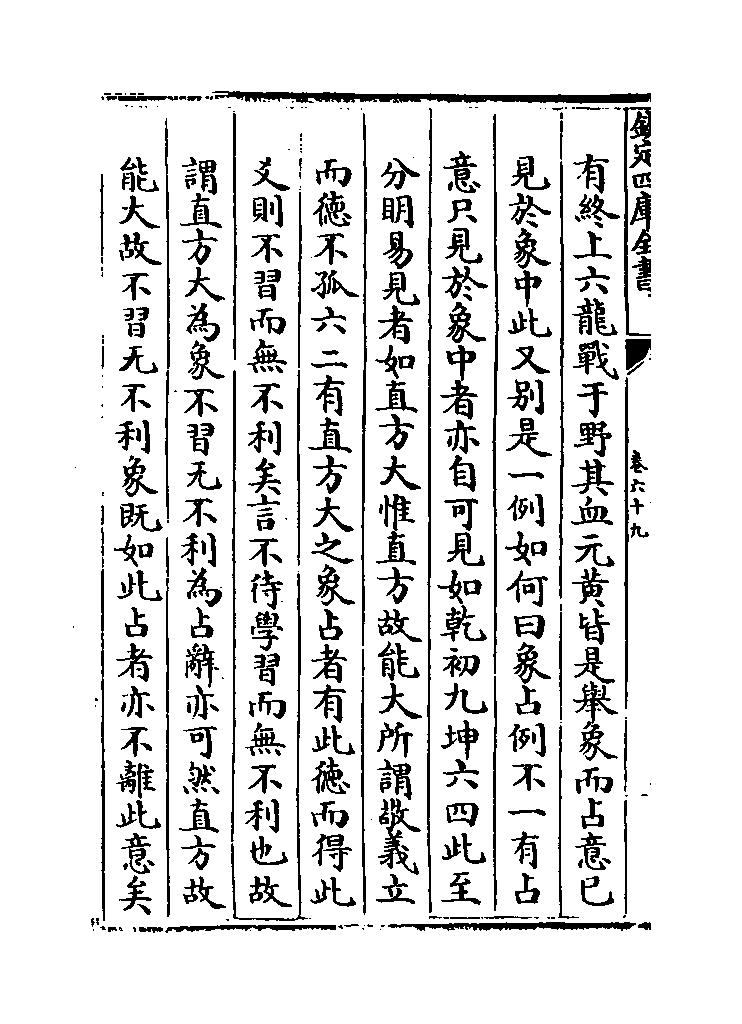 欽定四庫全書
卷六十九
有終上六龍戰于野其血元黄皆是舉象而占意已
見於象中此又别是一例如何曰象占例不一有占
意只見於象中者亦自可見如乾初九坤六四此至
分明易見者如直方大惟直方故能大所謂敬義立
而徳不孤六二有直方大之象占者有此徳而得此
爻則不習而無不利矣言不待學習而無不利也故
謂直方大為象不習无不利為占辭亦可然直方故
能大故不習无不利象既如此占者亦不離此意矣